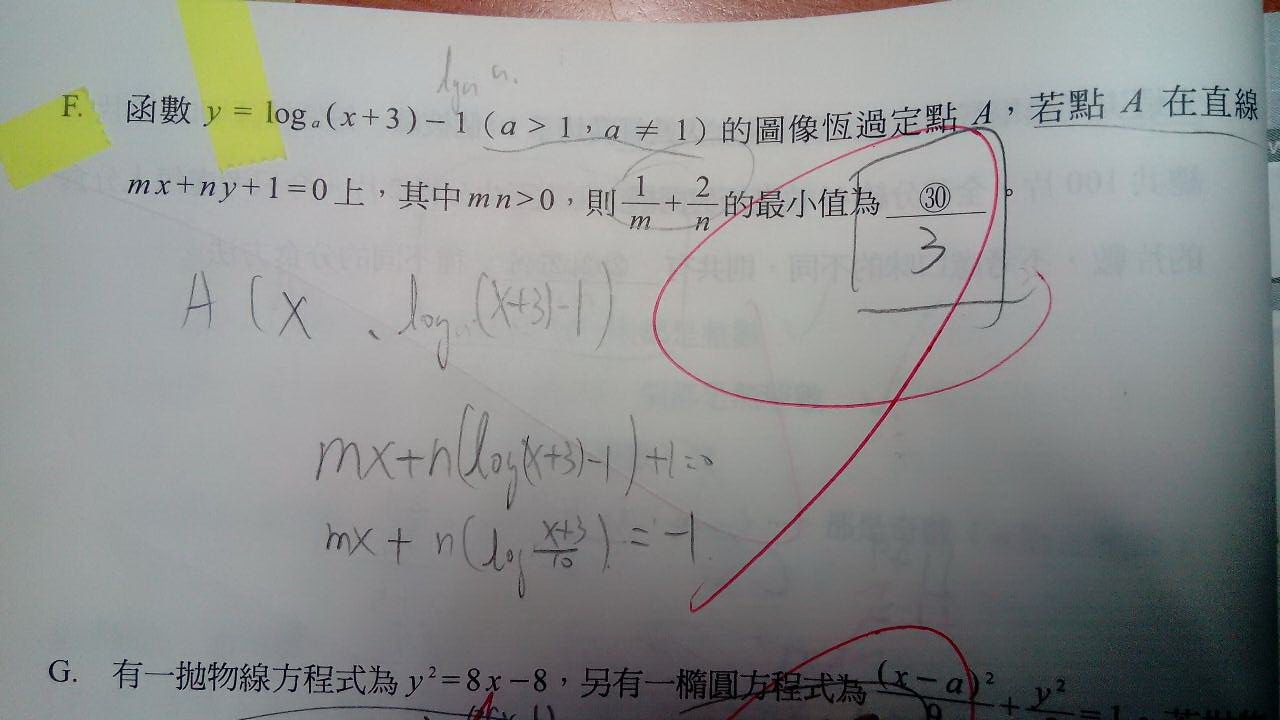 F. 函數 y = logₐ(x+3)−1 (a > 1，a ≠ 1) 的圖像恆過定點 A，若點 A 在直線
mx+ny+1=0上，其中mn>0，則 1/m + 2/n 的最小值為 ㉚ 。
3
A (x 、log (x+3)-1)
mx+n(log(x+3)-1)+1=0
mx + n(log (x+3)/10) = -1
G. 有一拋物線方程式為 y²=8x−8，另有一橢圓方程式為 (x−a)²/9 + y²